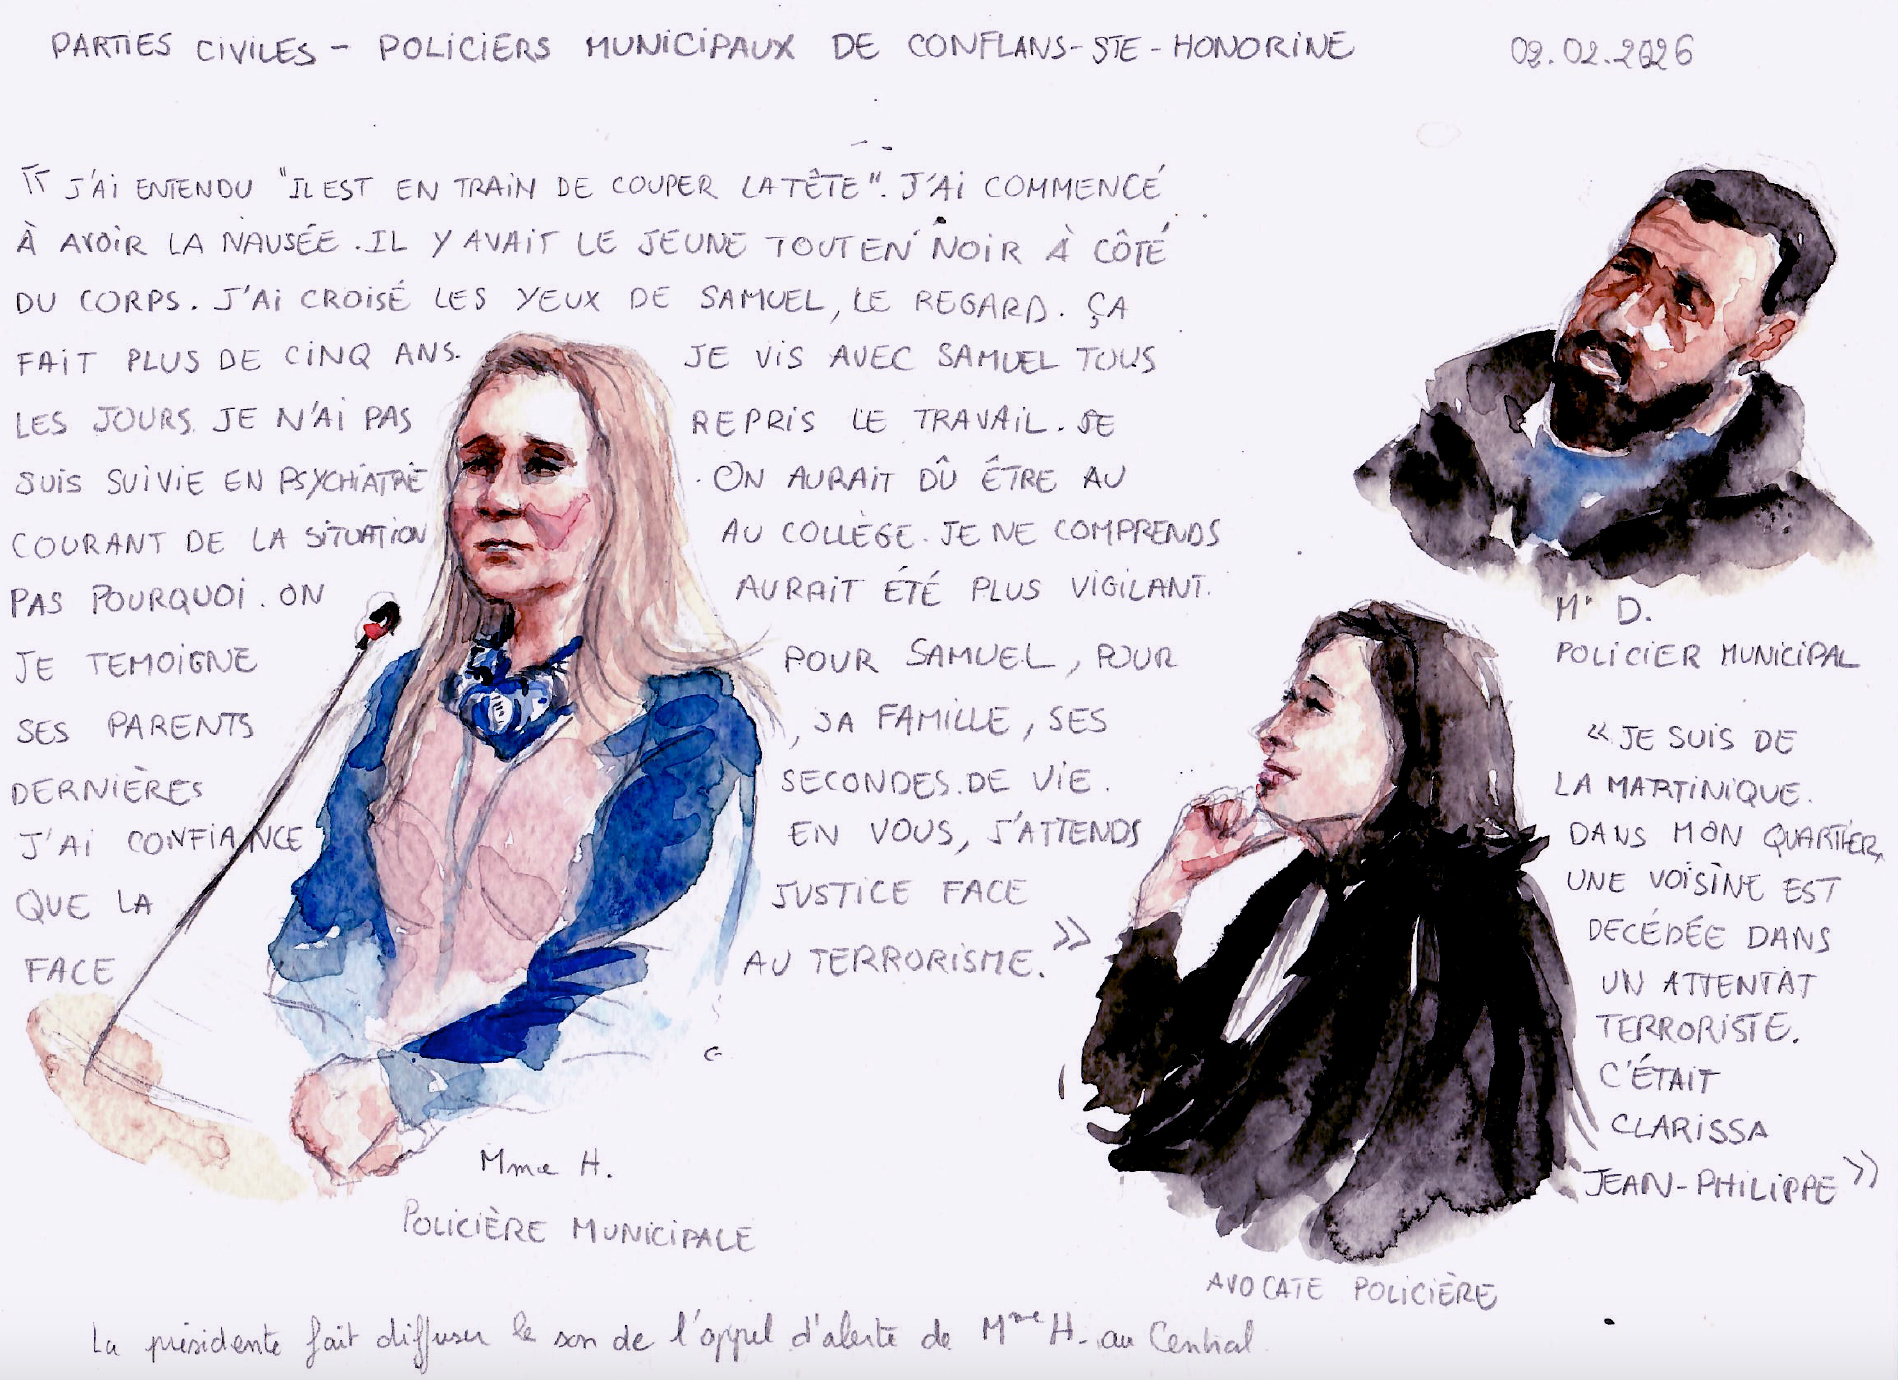 PARTIES CIVILES - POLICIERS MUNICIPAUX DE CONFLANS-STE-HONORINE 02.02.2026
« J'AI ENTENDU "IL EST EN TRAIN DE COUPER LA TÊTE". J'AI COMMENCÉ
À AVOIR LA NAUSÉE. IL Y AVAIT LE JEUNE TOUT EN NOIR À CÔTÉ
DU CORPS. J'AI CROISÉ LES YEUX DE SAMUEL, LE REGARD. ÇA
FAIT PLUS DE CINQ ANS. JE VIS AVEC SAMUEL TOUS
LES JOURS. JE N'AI PAS REPRIS LE TRAVAIL. JE
SUIS SUIVIE EN PSYCHIATRIE. ON AURAIT DÛ ÊTRE AU
COURANT DE LA SITUATION AU COLLÈGE. JE NE COMPRENDS
PAS POURQUOI. ON AURAIT ÉTÉ PLUS VIGILANT.
JE TEMOIGNE POUR SAMUEL, POUR
SES PARENTS, SA FAMILLE, SES
DERNIÈRES SECONDES DE VIE.
J'AI CONFIANCE EN VOUS, J'ATTENDS
QUE LA JUSTICE FACE
FACE AU TERRORISME. »
Mme H.
POLICIÈRE MUNICIPALE
Mr D.
POLICIER MUNICIPAL
« JE SUIS DE
LA MARTINIQUE.
DANS MON QUARTIER,
UNE VOISINE EST
DECÉDÉE DANS
UN ATTENTAT
TERRORISTE.
C'ÉTAIT
CLARISSA
JEAN-PHILIPPE »
AVOCATE POLICIÈRE
La présidente fait diffuser le son de l'appel d'alerte de Mme H. au Central